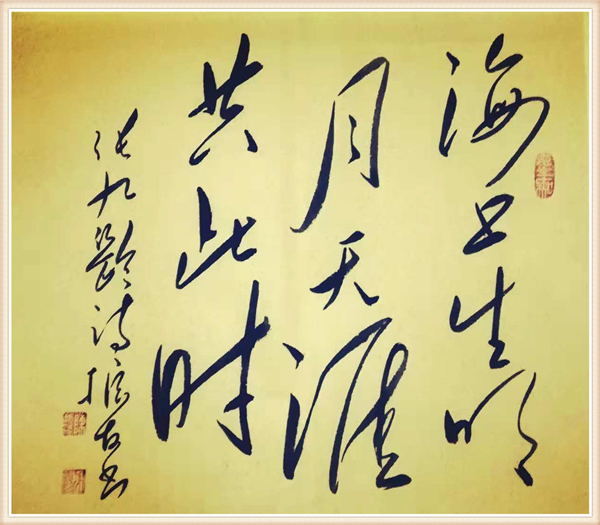 海上生明
月天涯
共此时
张九龄诗振友书